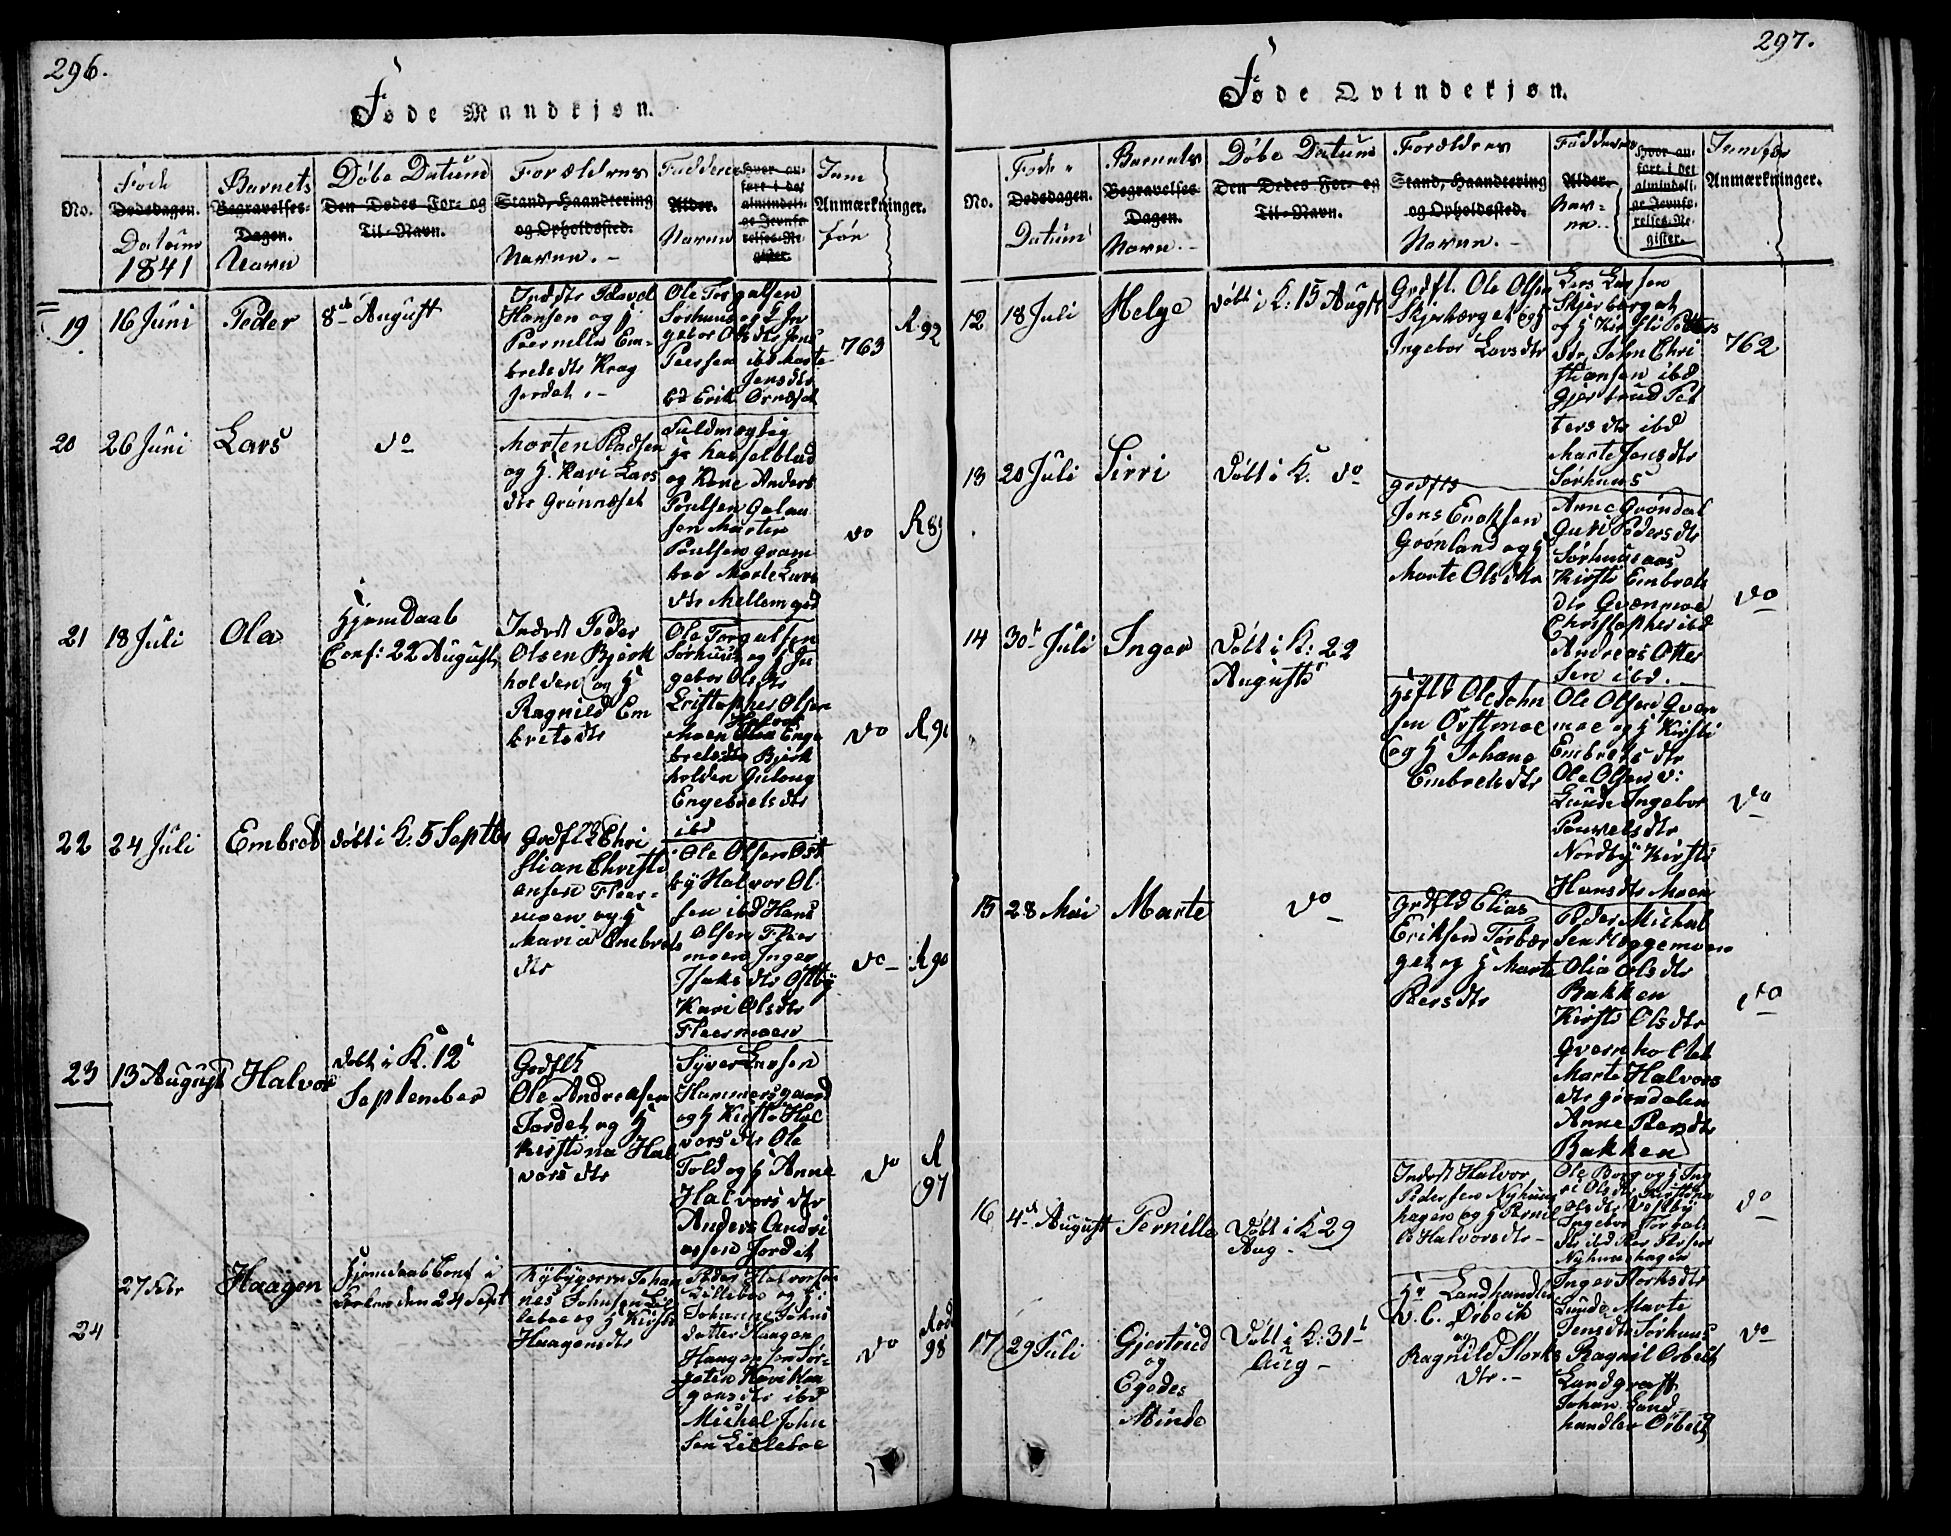 296.
Føde Mandkjøn.
No.
Føde
Dødsdagen.
Datum
1841
Barnets
Begravelses-
Dagen.
Navn
Døbe Datum
Den Dødes For- og
Til-Navn.
Forældres
Stand, Haandtering
og Opholdssted.
Navne. -
Faddere
Alder.
Navne
Hvor an-
ført i det
almindeli-
ge Jevnfø-
relses-Re-
gister.
Jam
Anmærkninger.
før
19
16 Juni
Peder
8de August
Hansen og H
Pernille Em-
bretsdtr Krag
Jordet. -
Ole Torgalsen
Sørhuus og H In
gebor Olsdtr Jens
Peersen ibd Marte
Jensdtr
bd Erik Ornæset
763
A. 92
20
26 Juni
Lars
do
Morten Pedsen
og H. Kari Lars
dtr Grønnæset
Fuldmægtig
og Kone Anders
Poulsen Galaa
sen Morten
Poulsen Gram
boe Marte Lars
dtr Mellemgrd
do
A 89
21
18 Juli
Ola
Hjemdaab
Conf: 22 August
Inderst Peder
Olsen Bjørk
holden og H
Ragnild Em
bretsdtr
Ole Torgalsen
Sørhuus og H In
gebor Olsdtr
Cristopher Olsen
Moen Halvor Enge
bretsdtr Bjørk
holden Guloug
Engebretsdtr
ibd
do
A. 91
22
24 Juli
Embret
døbt i K. 5 Septbr
Grdfld Chri
stian Christi
ansen Fleer-
moen og H
Maria Embrets
dtr
Ole Olsen Øst
by Halvor Ol-
sen ibd Hans
Olsen Fleer
moen Inger
Isaksdtr Østby
Kari Olsdtr
Fleermoen
do -
A 90
23
13 August
Halvor
døbt i K. 12
September
Grdfld
Ole Andreasen
Jordet og H
Kirstina Hal
vorsdtr
Syver Larsen
Hammersgaard
og H Kirsti Hal
vorsdtr Ole
Told og H Anne
Halvorsdtr
Anders Andri
assen Jordet
do
A
97
24
27 Febr
Haagen
Hjemdaab Conf i
Kirken den 24 Sept
Nybygeren Johan
nes Johnsen Lil
leboe og H Kirsti
Haagensdtr
Peder Halvorsen
Lilleboe og H
Johanne Johns
datter Haagen
Haagensen Sør-
gaten Kari Haa
gensdtr ibd
Michel John
sen Lilleboe
do
98
297.
Føde Qvindekjøn.
No.
Føde
Dødsdagen.
Datum
Barnets
Begravelses-
Dagen.
Navn. -
Døbe Datum
Den Dødes For- og
Til-Navn.
Forældres
Stand, Haandtering
og Opholdssted.
Navne. -
Faddernes
Alder.
Nav-
ne. -
Hvor an-
ført i det
almindeli-
ge Jevnfø-
relses-Re-
gister.
Jamfør
Anmærkninger.
12
18 Juli
Helge
døbt i K: 15 August
Grdfl. Ole Olsen
Skjerberget og H
Ingebor Larsdtr
Lars Larsen
Skjerberget
og H Kirsti Peters
dtr John Chri
stiansen ibd
Gjertrud Pet
tersdtr ibd
Marte Jensdtr
Sørhuus
762
13
20 Juli
Sirri
Døbt i K. do
Grdfld
Jens Enoksen
Grønland og H
Marte Olsdtr
Anne Grøndal
Guri Pedersdtr
Sørhuusaas
Kirsti Embrets
dtr Qvænmoe
Christopher ibd
Andreas Otter
sen ibd.
do
14
30te Juli
Inger
Døbt i K: 22
August
Hsfld Ole John
sen Østmoe
og H Johane
Embretsdtr
Ole Olsen Qvæn
moe og H Kirsti
Embretsdtr
Ole Olsen
Lunde Ingebor
Pouvelsdtr
Nordby Kirsti
Hansdtr Moen
do
15
28 Mai
Marte
do
Grdfld Elias
Eriksen Tørbær
get og H Marte
Peersdtr
Peder Michel
sen Heggemoen
Olia Olsdtr
Bakken
Kirsti Olsdtr
Qverneholtet
Marte Halvors
dtr Grøndalen
Anne Persdtr
Bakken
do
16
4de August
Pernille
Døbt i K 29
Aug -
Inderst Halvor
Pedersen Nyhuus
hagen og H Pernil
le Halvorsdtr -
Ole Borg og H Ing
Olsdtr Vestby
Nyhuushagen
do
17
29 Juli
Gjertrud
og
Egedes
Minde
Døbt i K: 31te
Aug -
Hr Landhandler
O. C. Ørbech
og
Ragnild Storks
dtr. -
Inger Storksdtr
Lunde Marte
Jensdtr Sørhuus
Ragnil Ørbech
Landgraff
Johan Land-
handler Ørbech
do